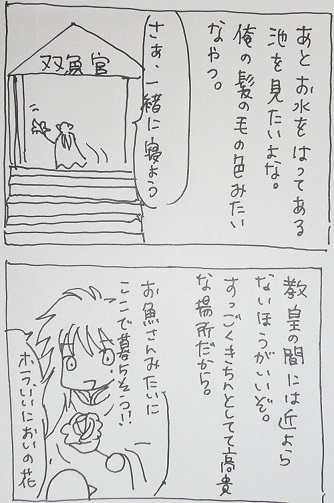 あとお水をはってある
池を見たいよな。
俺の髪の毛の色みたい
なやつ。
さぁ、一緒に寝よう
双魚宮
教皇の間には近よら
ないほうがいいぞ。
すっごくきちんとしてて高貴
な場所だから。
お魚さんみたいに
ここで暮らそう!!
ホラ、いいにおいの花